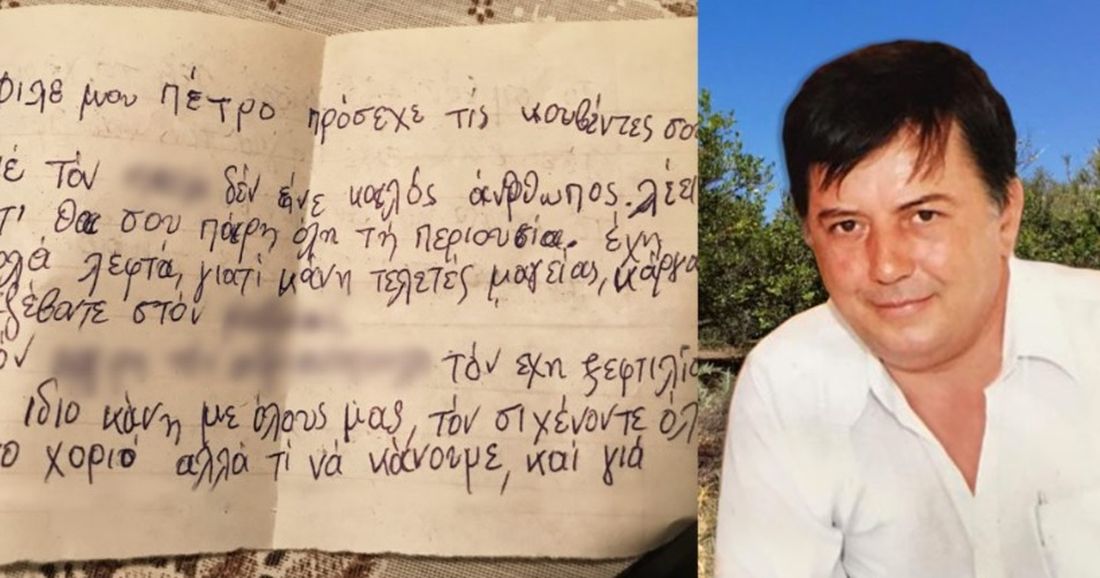 φιλε μου Πέτρο πρόσεχε τίς κουβέντες σου
μέ τόν δέν είνε καλός άνθρωπος. λέει
ότι θα σου πάρη όλη τή περιουσία. έχη
πολά λεφτά, γιατί κάνη τελετές μαγείας, κάργα
στόν
τόν έχη ξεφτιλίσ
ιδιο κάνη με όλους μας, τόν σιχένοντε όλ
χοριό αλλά τί νά κάνουμε, καί γιά